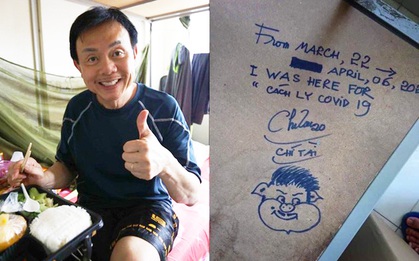 From MARCH, 22 →
APRIL, 06, 202
I WAS HERE FOR
"CACH LY COVID 19
CHÍ TÀI